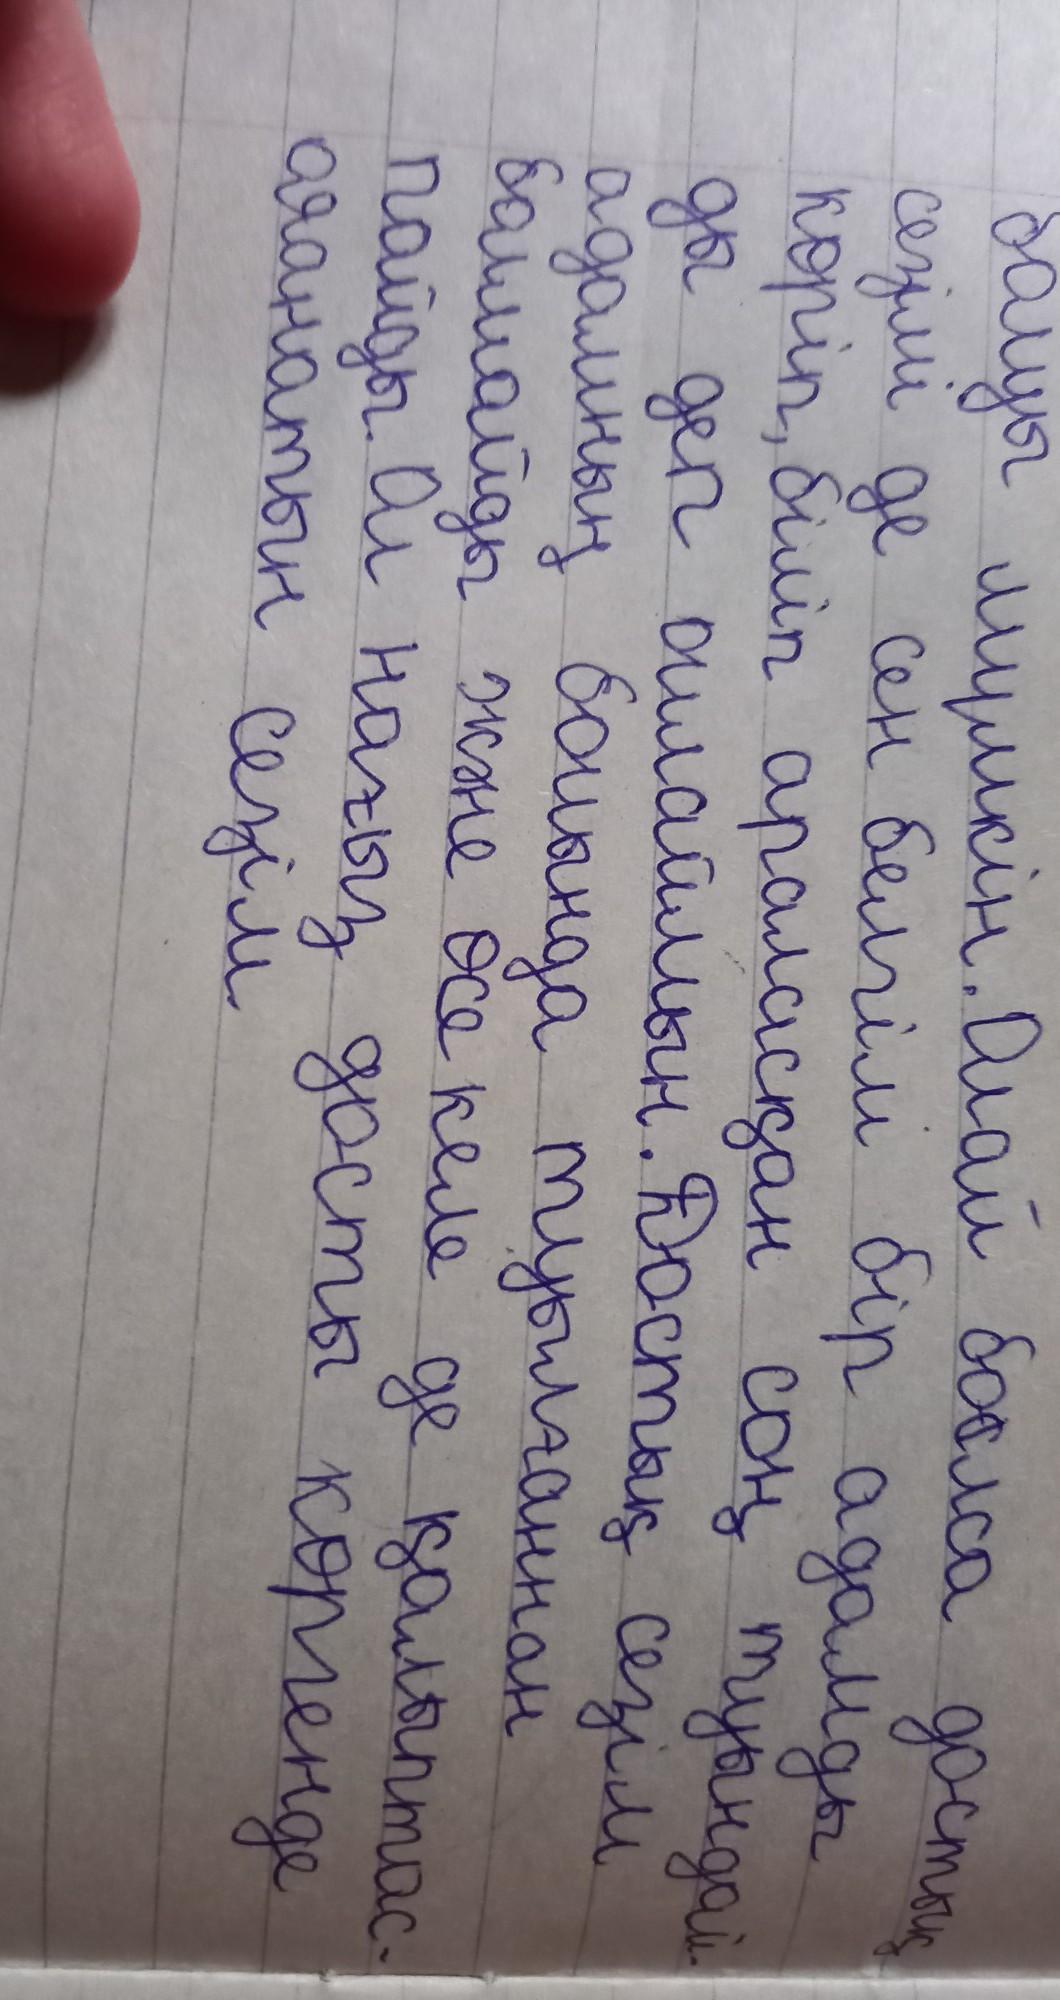 болуы мүмкін. Олай болса достық
сезімі де сен белгілі бір адамды
көріп, біліп араласқан соң туындай-
ды деп ойлаймын. Достық сезім
адамның бойында туылғаннан
болмайды және өсе келе де қалыптас-
пайды. Ол нағыз досты көргенде
оянатын сезім.